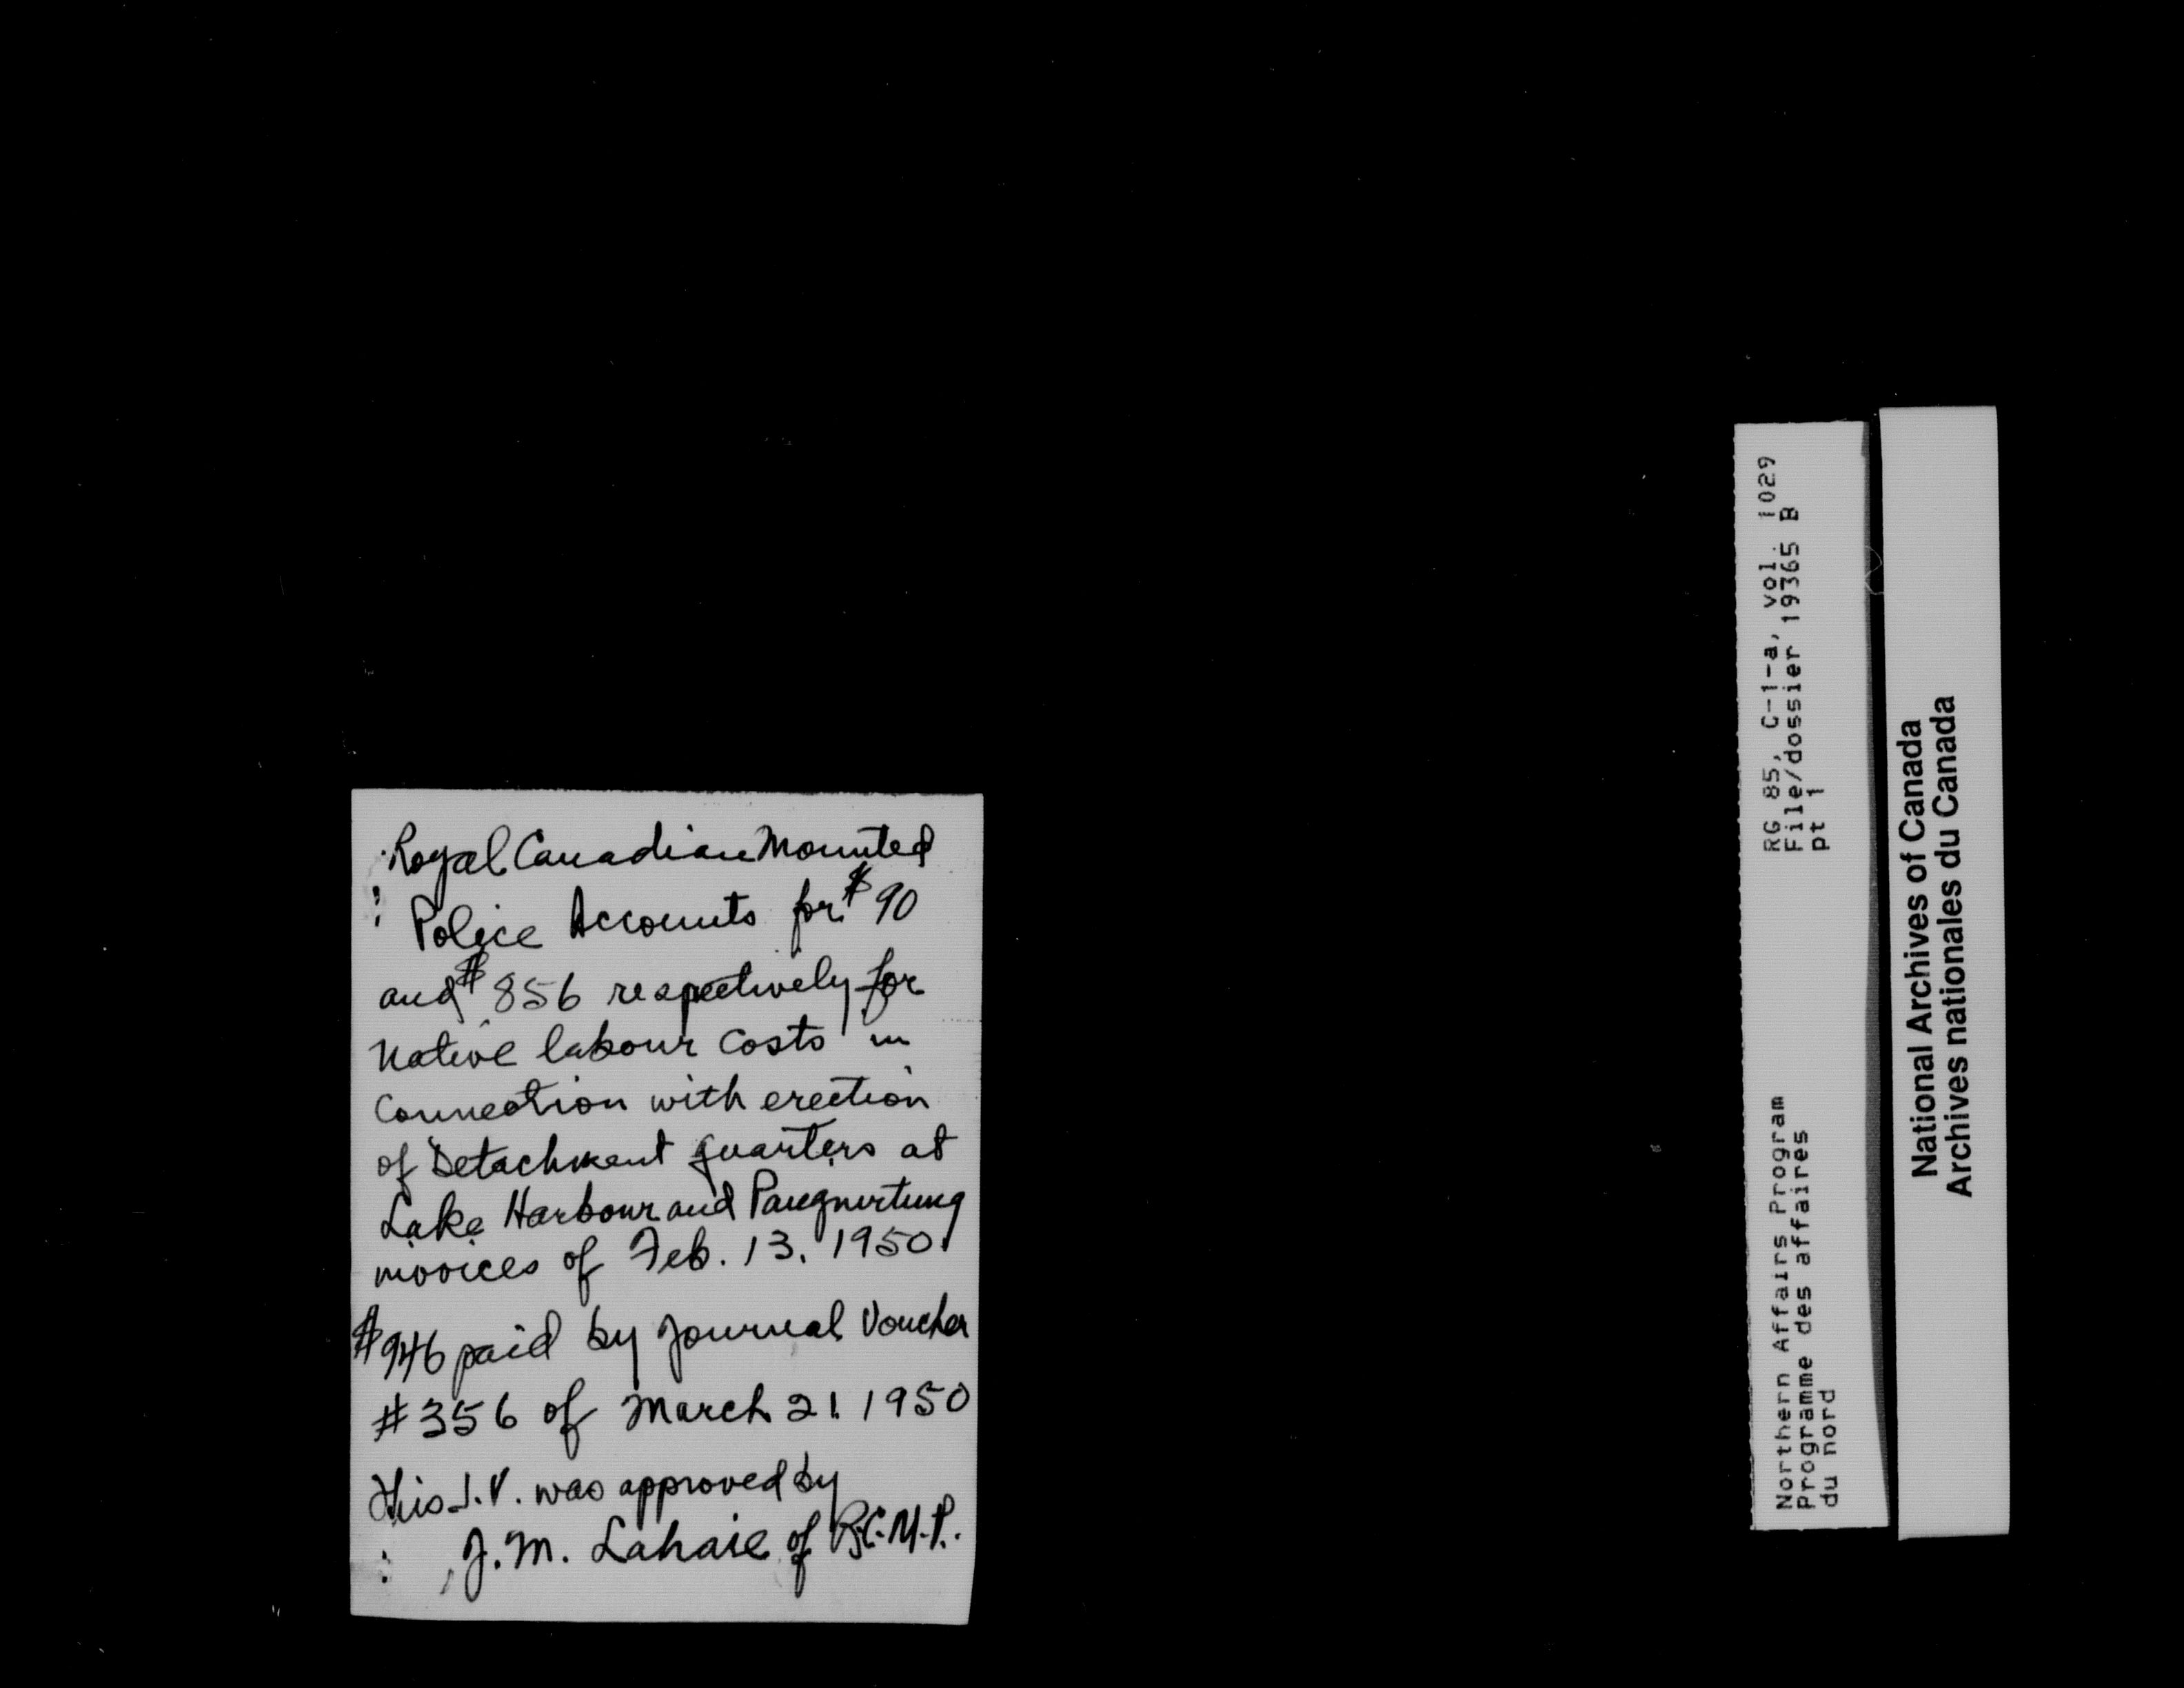 Royal Canadian Mounted
Police Accounts for $90
and $856 respectively for
native labour costs in
connection with erection
of Detachment quarters at
Lake Harbour and Pangnirtung
invoices of Feb. 13, 1950.
$946 paid by Journal Voucher
#356 of March 21. 1950
This J.V. was approved by
J.M. Lahaie of R.C.M.P.
RG 85, C-1-a, vol. 1029
File/dossier 19365 B
pt 1
Northern Affairs Program
Programme des affaires
du nord
National Archives of Canada
Archives nationales du Canada